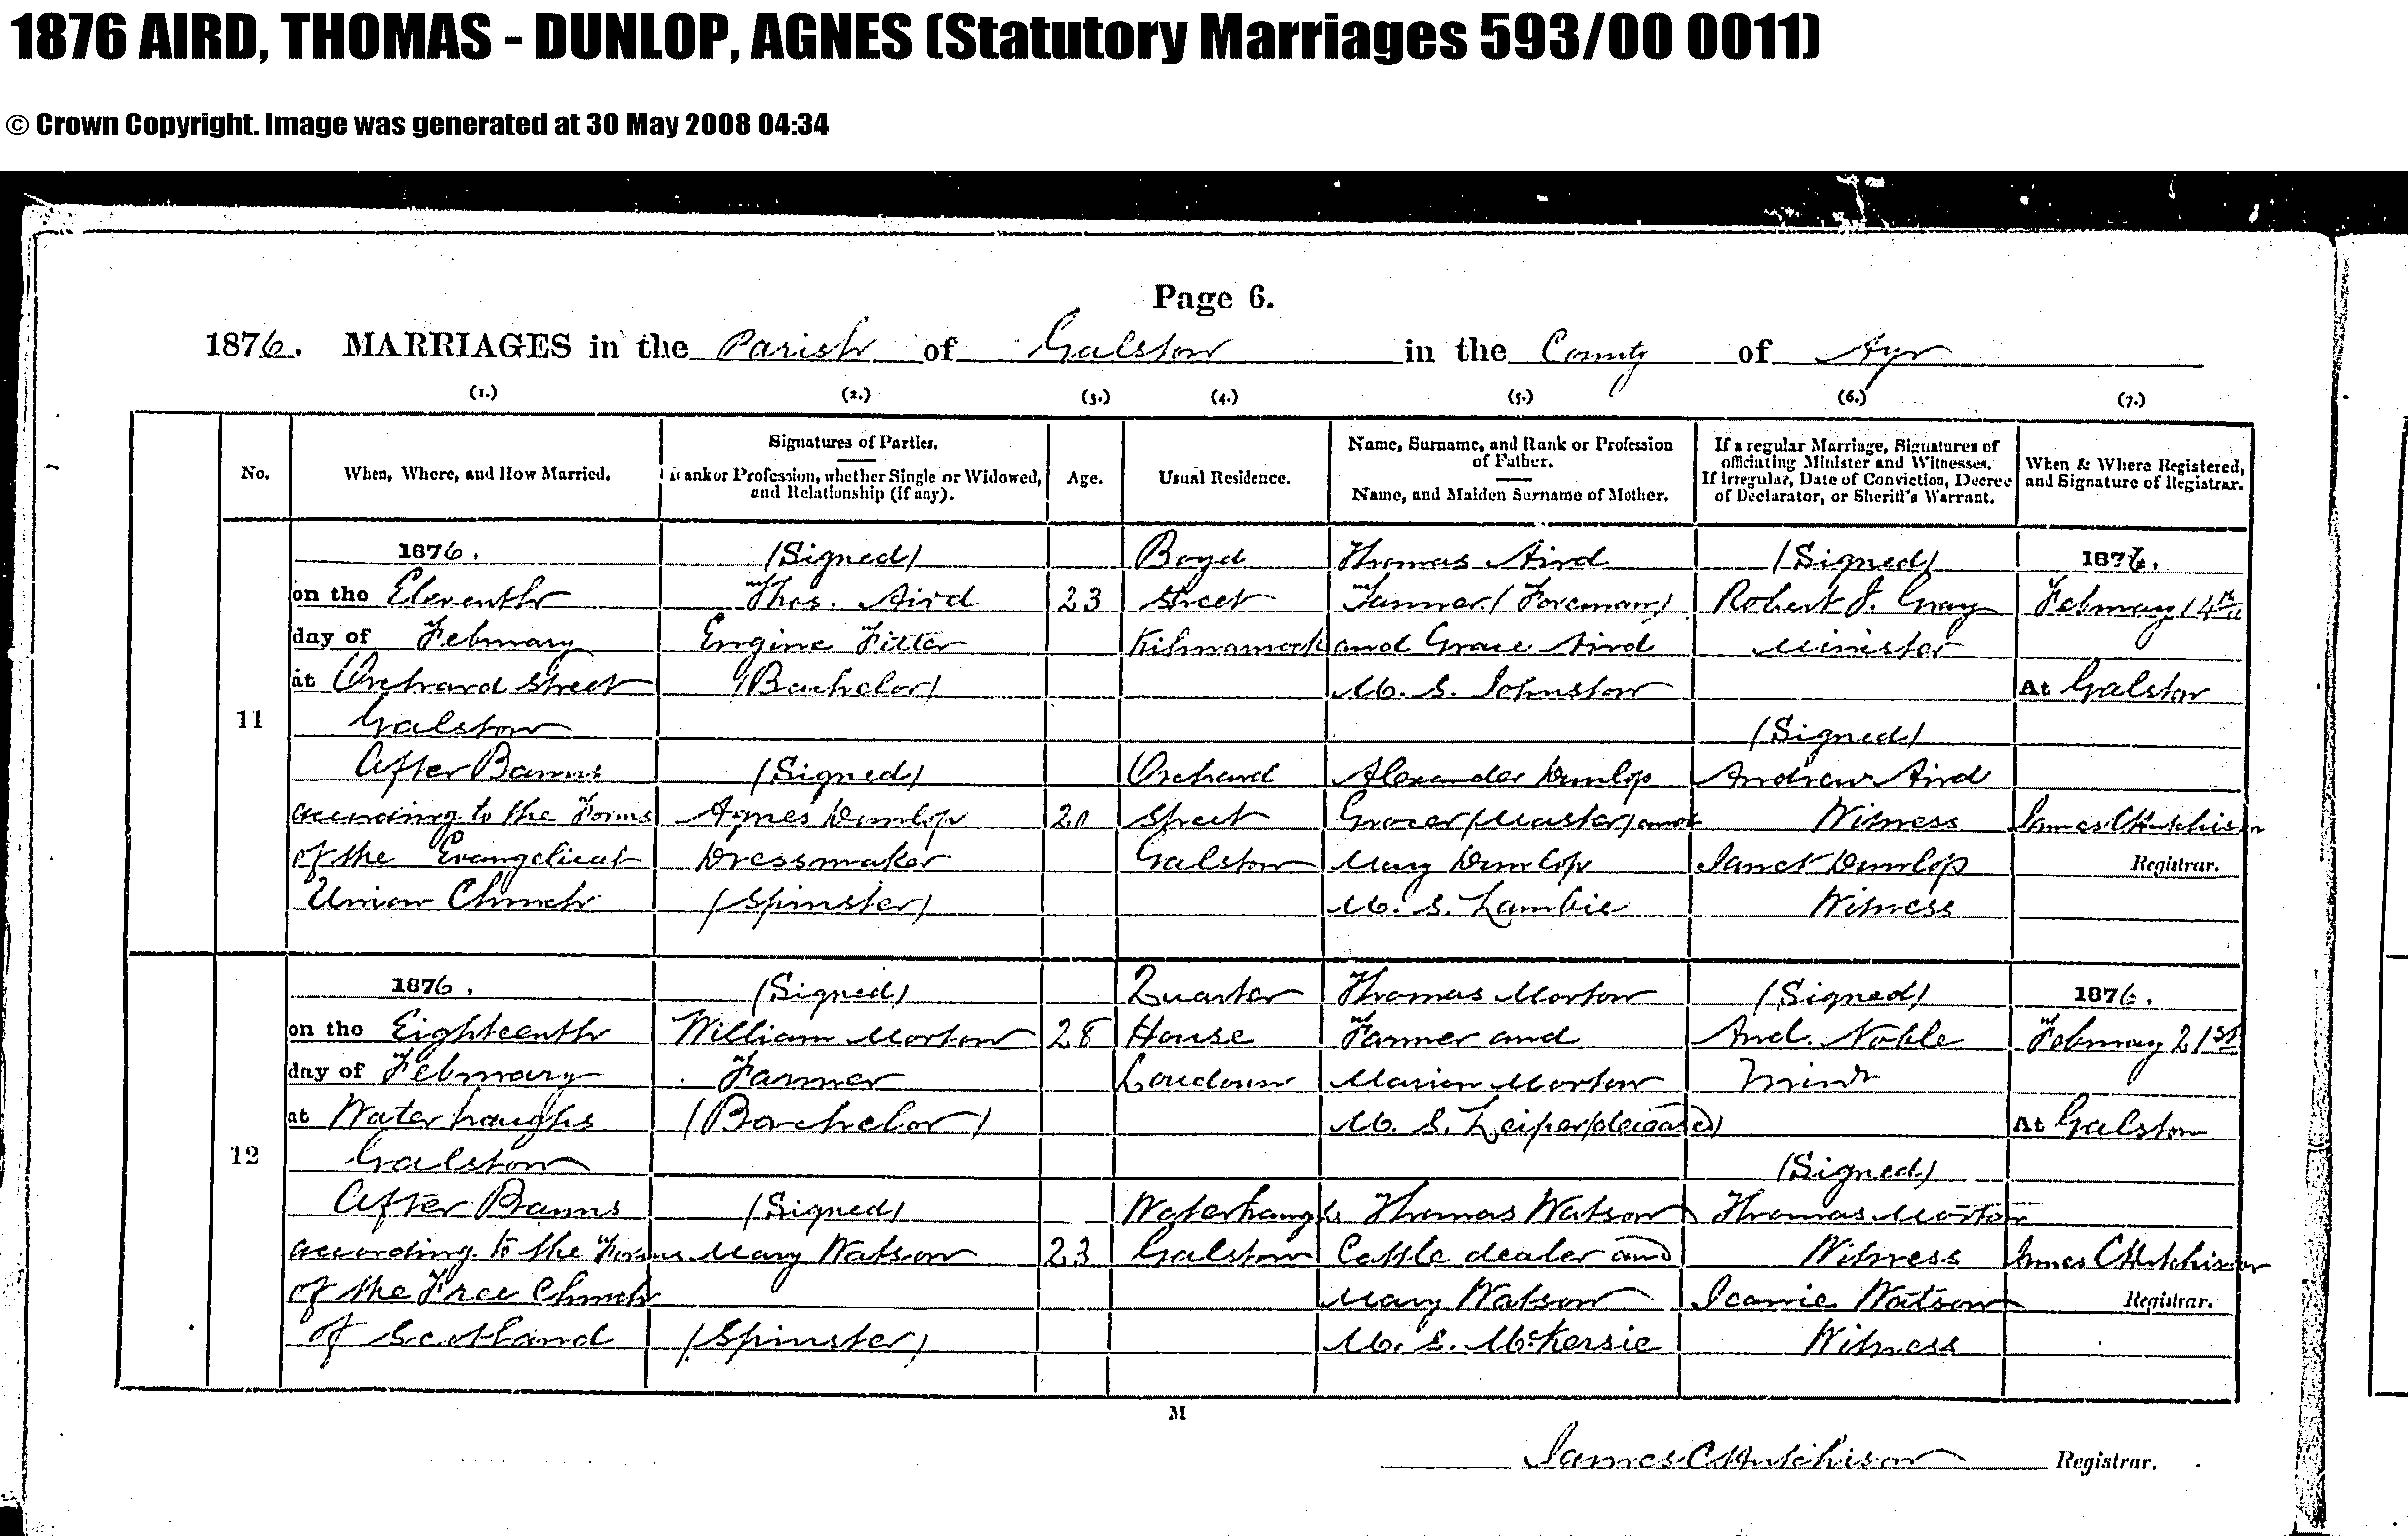 1876 AIRD, THOMAS - DUNLOP, AGNES (Statutory Marriages 593/00 0011)
© Crown Copyright. Image was generated at 30 May 2008 04:34
Page 6.
1876. MARRIAGES in the Parish of Galston in the County of Ayr
(1.) (2.) (3.) (4.) (5.) (6.) (7.)
No.
When, Where, and How Married.
Signatures of Parties.
Rank or Profession, whether Single or Widowed,
and Relationship (if any).
Age.
Usual Residence.
Name, Surname, and Rank or Profession
of Father.
Name, and Maiden Surname of Mother.
If a regular Marriage, Signatures of
officiating Minister and Witnesses.
If Irregular, Date of Conviction, Decree
of Declarator, or Sheriff's Warrant.
When & Where Registered,
and Signature of Registrar.
11
1876.
on the Eleventh
day of February
at Orchard Street
Galston
After Banns
according to the Forms
of the Evangelical
Union Church
(Signed)
Thos. Aird
Engine Fitter
(Bachelor)
(Signed)
Agnes Dunlop
Dressmaker
(Spinster)
23
Boyd
Street
Kilmarnock
Orchard
Street
Galston
Thomas Aird
Tanner (Foreman)
and Grace Aird
M. S. Johnston
Alexander Dunlop
Grocer (Master) and
Mary Dunlop
M. S. Lambie
(Signed)
Robert J. Gray
Minister
(Signed)
Andrew Aird
Witness
Janet Dunlop
Witness
1876.
February 14th
At Galston
James C Hutchison
Registrar.
12
1876.
on the Eighteenth
day of February
at Waterhaughs
Galston
After Banns
according to the Forms
of the Free Church
of Scotland
(Signed)
William Morton
Farmer
(Bachelor)
(Signed)
Mary Watson
(Spinster)
28
23
Quarter
House
Loudoun
Waterhaughs
Galston
Thomas Morton
Farmer and
Marion Morton
M. S. Leiper (deceased)
Thomas Watson
Cattle dealer and
Mary Watson
M. S. McKersie
(Signed)
And. Noble
Minr
(Signed)
Thomas Morton
Witness
Jeanie Watson
Witness
1876.
February 21st
At Galston
James C Hutchison
Registrar.
M
James C Hutchison Registrar.